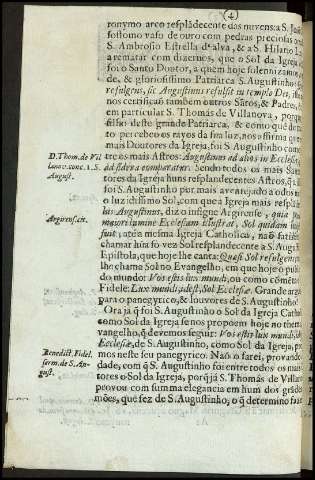 (4)
ronymo arco resplãdecente das nuvens: a S. Joaõ
sostomo vaso de ouro com pedras preciosas
S. Ambrosio Estrella d'alva, & a S. Hilario
a rematar com dizermos, que o Sol da Igreja
foi o Santo Doutor, a quem hoje solennizamos,
de, & gloriosissimo Patriarca S. Augustinho:
refulgens, sic Augustinus refulsit in templo Dei,
nos certificaõ tambem outros Sãtos, & Padres,
em particular S. Thomas de Villanova, porque
filho deste grande Patriarca, & como quẽ
to percebeo os rayos da sua luz, nos affirma que
mais Doutores da Igreja, foi S. Augustinho
D. Thom. de Vil
tre os mais Astros: Augustinus ad alios in Ecclesia,
Lanov. conc. 1. S.
ad sidera comparatur. Sendo todos os mais San
August.
tores da Igreja hũns resplandecentes Astros, q̃
foi S. Augustinho por mais aventejado a todos
o luzidissimo Sol, com que a Igreja mais
his Augustinus, diz o insigne Argirense, quia
Argirens. cit.
majori lumine Ecclesiam illustrat, Sol quidam
fuit; atè a mesma Igreja Catholica, naõ
chamar hũa so vez Sol resplandecente a S. Augusti
Epistola, que hoje lhe canta: Quasi Sol refulgens;
lhe chama Sol no Evangelho, em que hoje o
do mundo: Vos estis lux mundi, ou como cõmenta
Fidele: Lux mundi, idest, Sol Ecclesiæ. Grande
para o panegyrico, & louvores de S. Augustinho!
Ora jà q̃ foi S. Augustinho o Sol da Igreja
como Sol da Igreja se nos propoem hoje no them
vangelho, q̃ deremos seguir: Vos estis lux mundi,
Ecclesiæ, de S. Augustinho, como Sol da Igreja,
Benedict. Fidel.
mos neste seu panegyrico. Naõ o farei, provando
serm. de S. Au-
dade, com q̃ S. Augustinho foi entre todos os mais
gust.
tores o Sol da Igreja, porq̃ jà S. Thomás de Villano
provou com summa elegancia em hum dos
mões, que fez de S. Augustinho; o q̃ determino